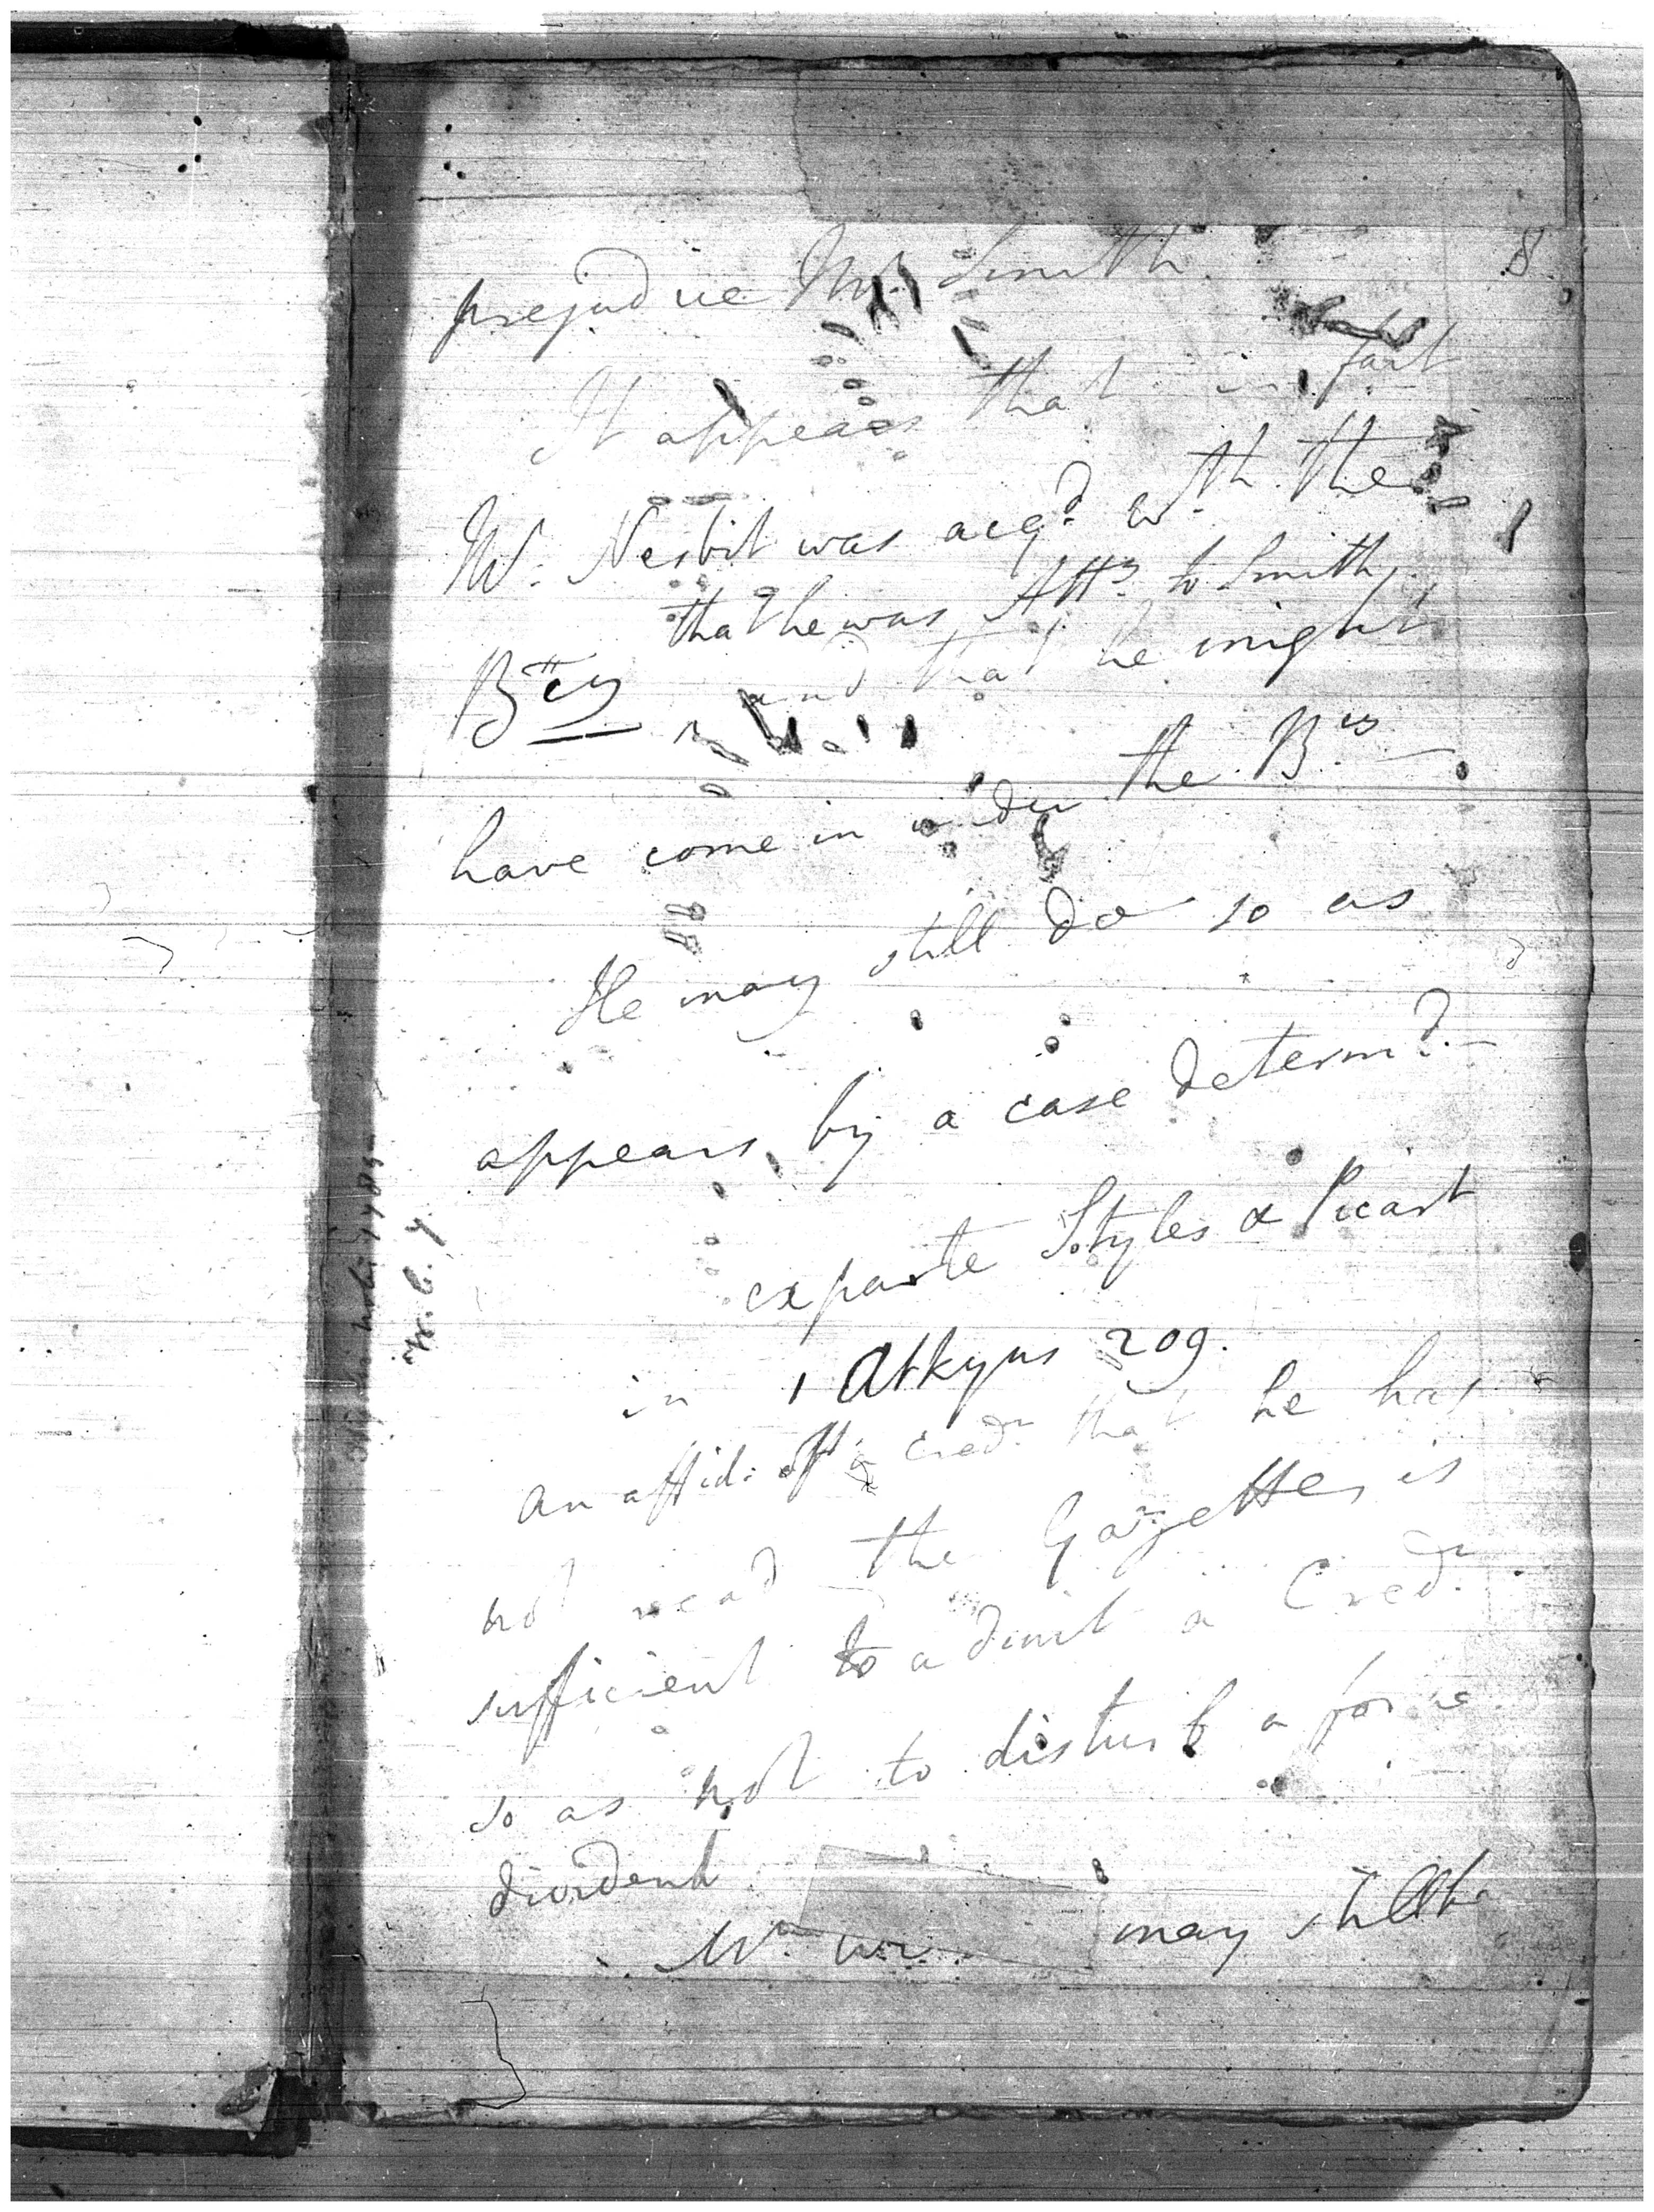 8
prejudice Mr. Smith.
It appears that in fact
Mr. Nesbit was acqd. wth. the
that he was Atty. to Smith,
Bcy and that he might
have come in under the Bcy
He may still do so as
appears by a case determd.
exparte Styles & Picart
in 1 Atkyns 209.
an affid: of a credr that he has
not read the Gazette, is
sufficient to admit a Credr
so as not to disturb a
dividend
may still